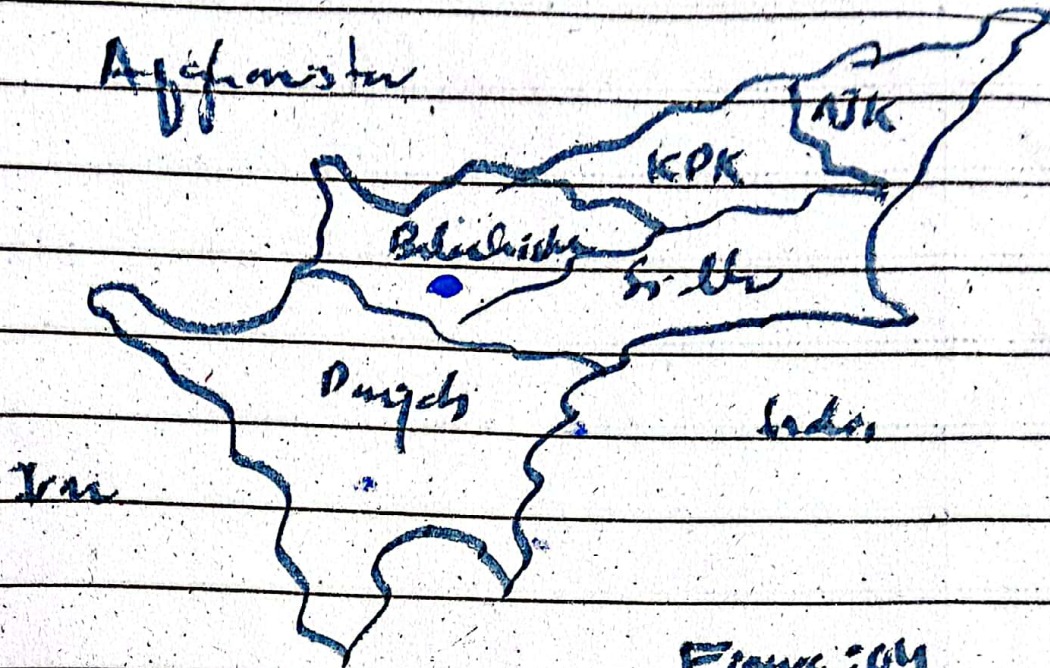 Afghanistan
AJK
KPK
Balochistan
Sindh
Punjab
India
Iran